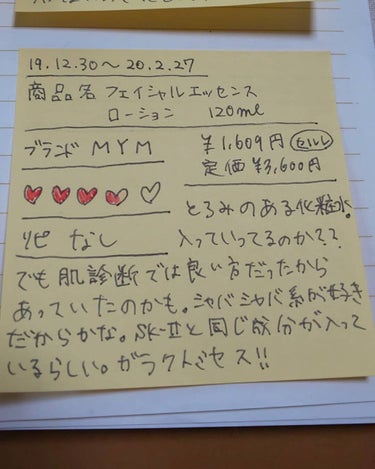 19.12.30〜20.2.27
商品名 フェイシャルエッセンス
ローション 120ml
ブランド MYM
¥1,609円
定価 ¥3,600円
とろみのある化粧水。
リピ なし
入っていってるのか??
でも肌診断では良い方だったから
あっていたのかも。シャバシャバ系が好き
だからかな。SK-Ⅱと同じ成分が入って
いるらしい。ガラクトミセス!!